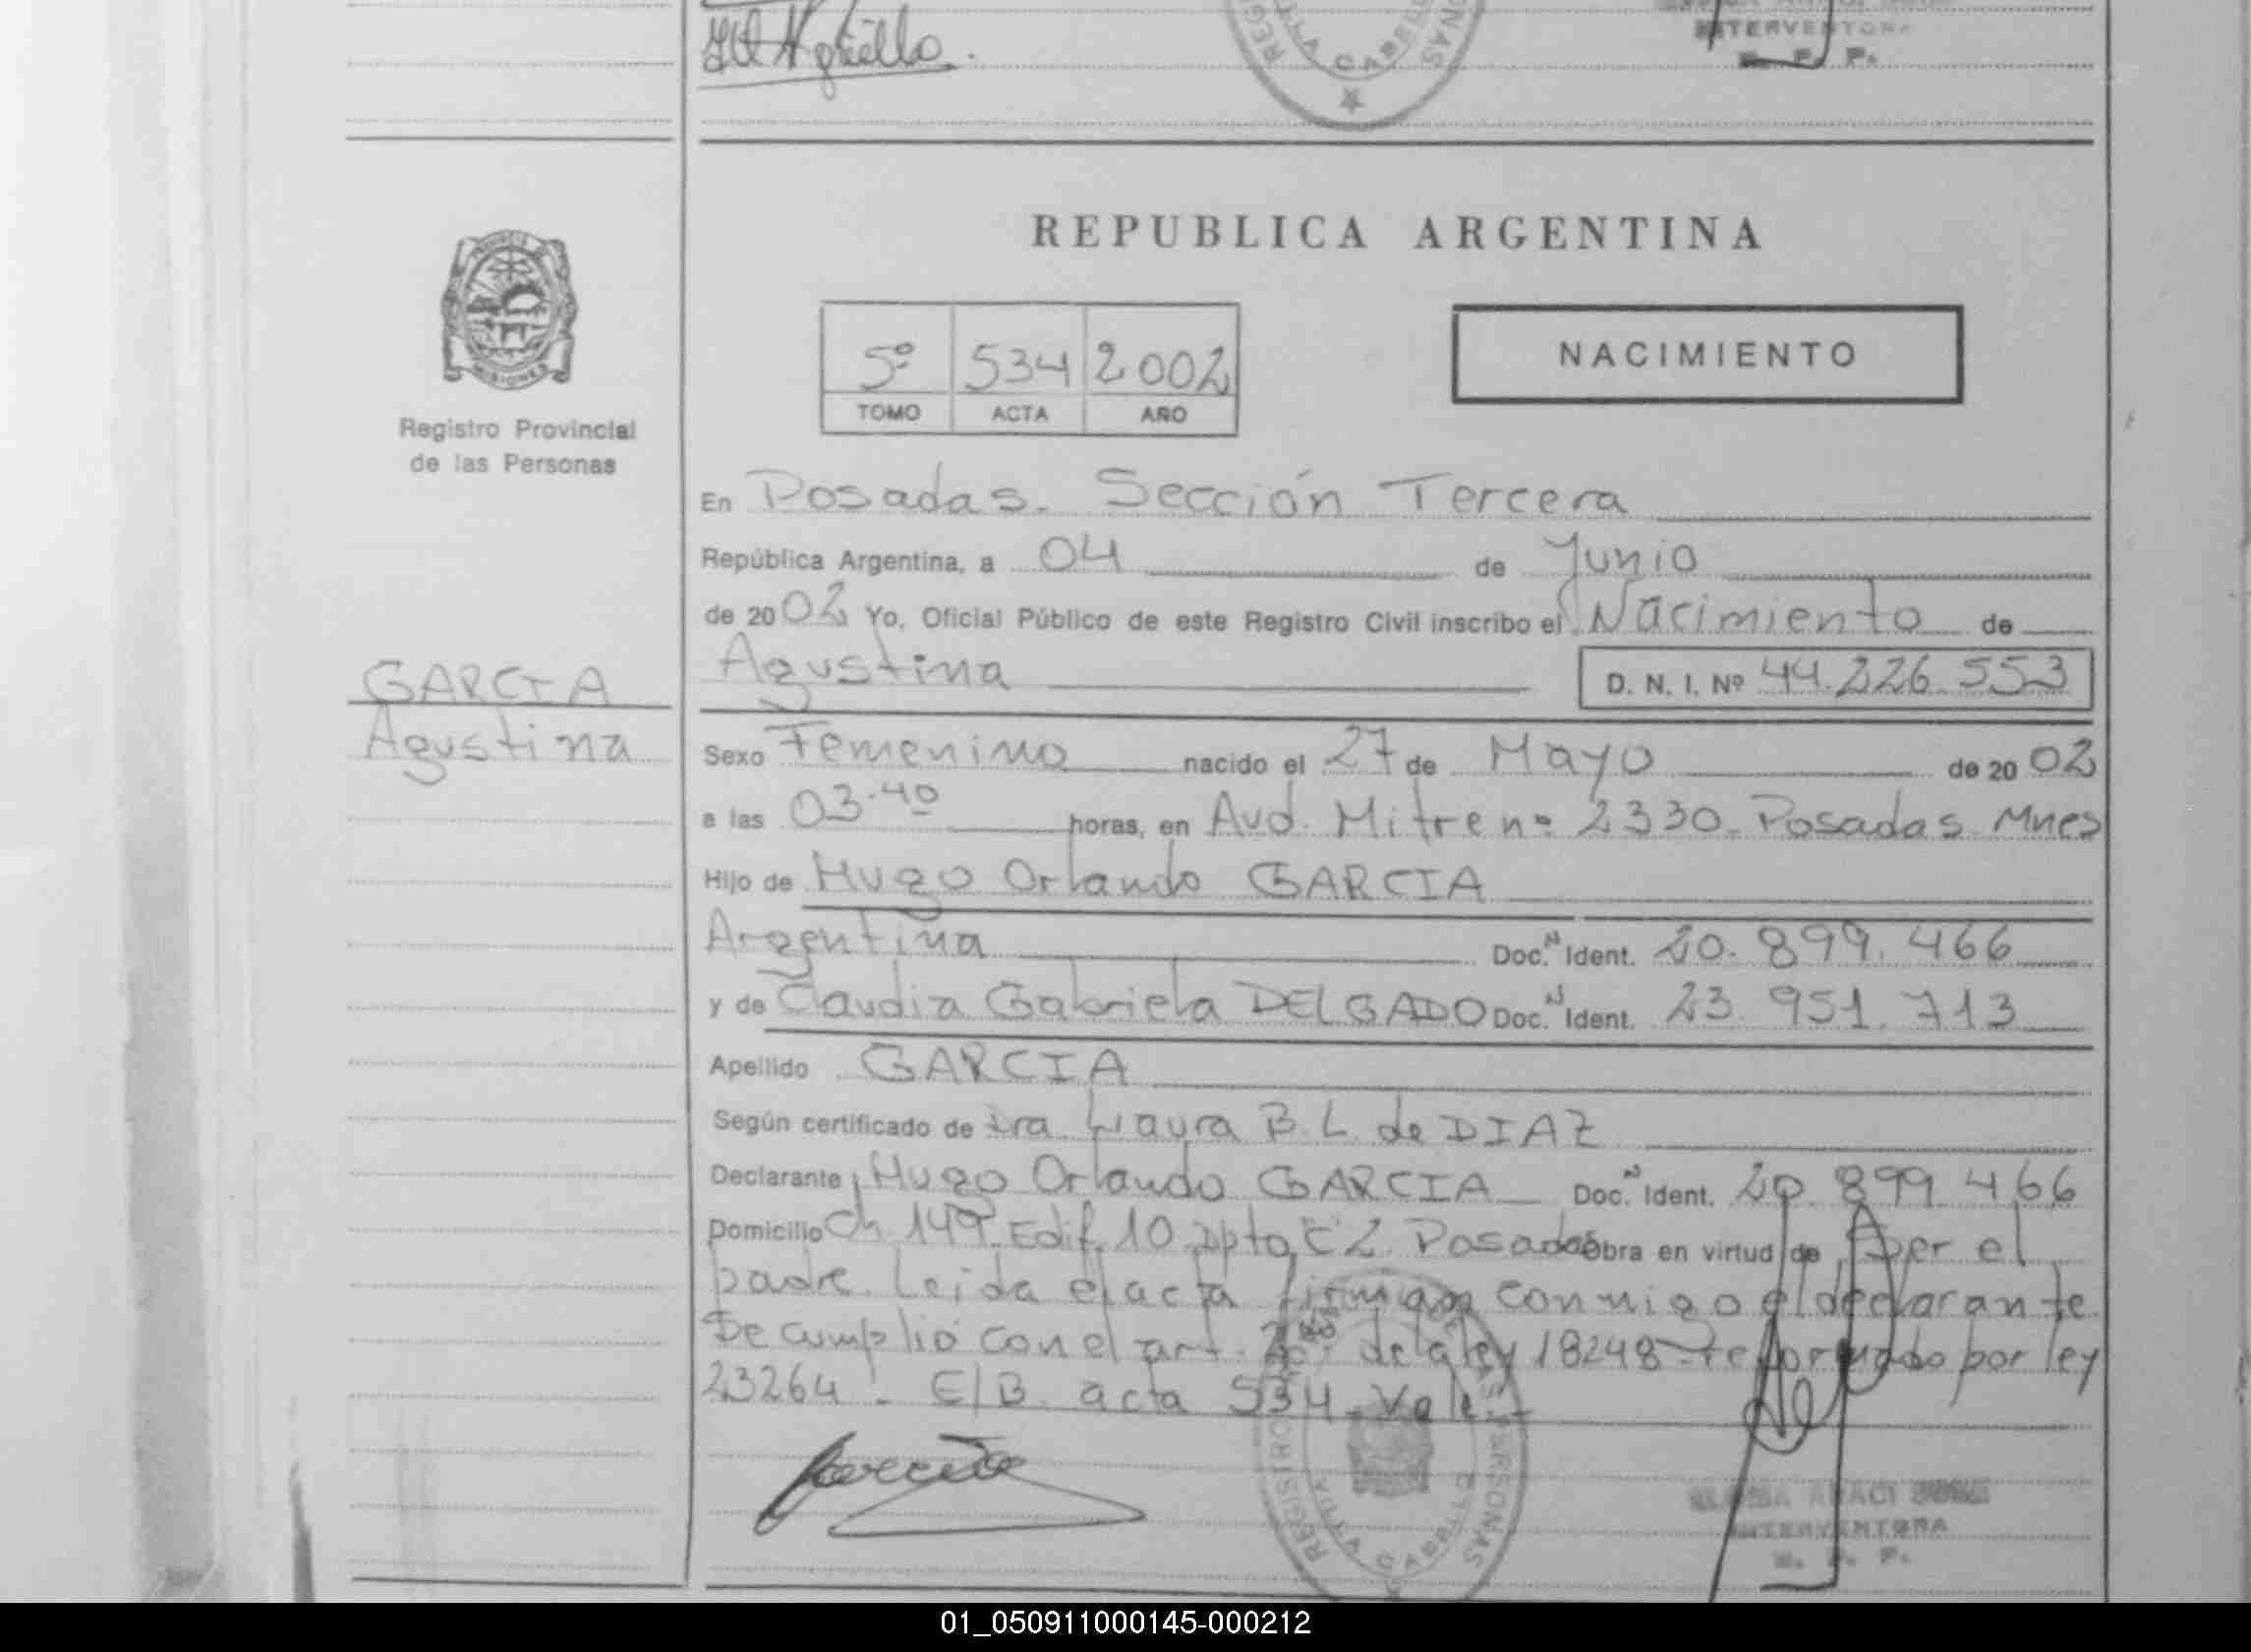 INTERVENTORA
R. P. P.
REGIS
VILLA CABELLO
ONAS
REPUBLICA ARGENTINA
PROVINCIA DE
MISIONES
Registro Provincial
de las Personas
5º 534 2002
TOMO ACTA AÑO
NACIMIENTO
En Posadas. Sección Tercera
República Argentina, a 04 de Junio
de 2002 Yo, Oficial Público de este Registro Civil inscribo el Nacimiento de
GARCIA
Agustina
Agustina D. N. I. Nº 44.226.553
Sexo Femenino nacido el 27 de Mayo de 2002
a las 03.40 horas, en Avd. Mitre nº 2330. Posadas Mnes
Hijo de Hugo Orlando GARCIA
Argentina Doc. N Ident. 20.899.466
y de Claudia Gabriela DELGADO Doc. N Ident. 23.951.713
Apellido GARCIA
Según certificado de Dra. Laura B. L. de DIAZ
Declarante Hugo Orlando GARCIA Doc. N Ident. 20.899.466
Domicilio Ch 149. Edif. 10 Dpto C2. Posadas obra en virtud de ser el
padre. Leida el acta firman conmigo el declarante.
Se cumplió con el art. de la ley 18248 reformado por ley
23264. E/B. acta 534. Vale.
REGISTRO
DE LAS PERSONAS
VILLA CABELLO
INTERVENTORA
R. P. P.
01_050911000145-000212